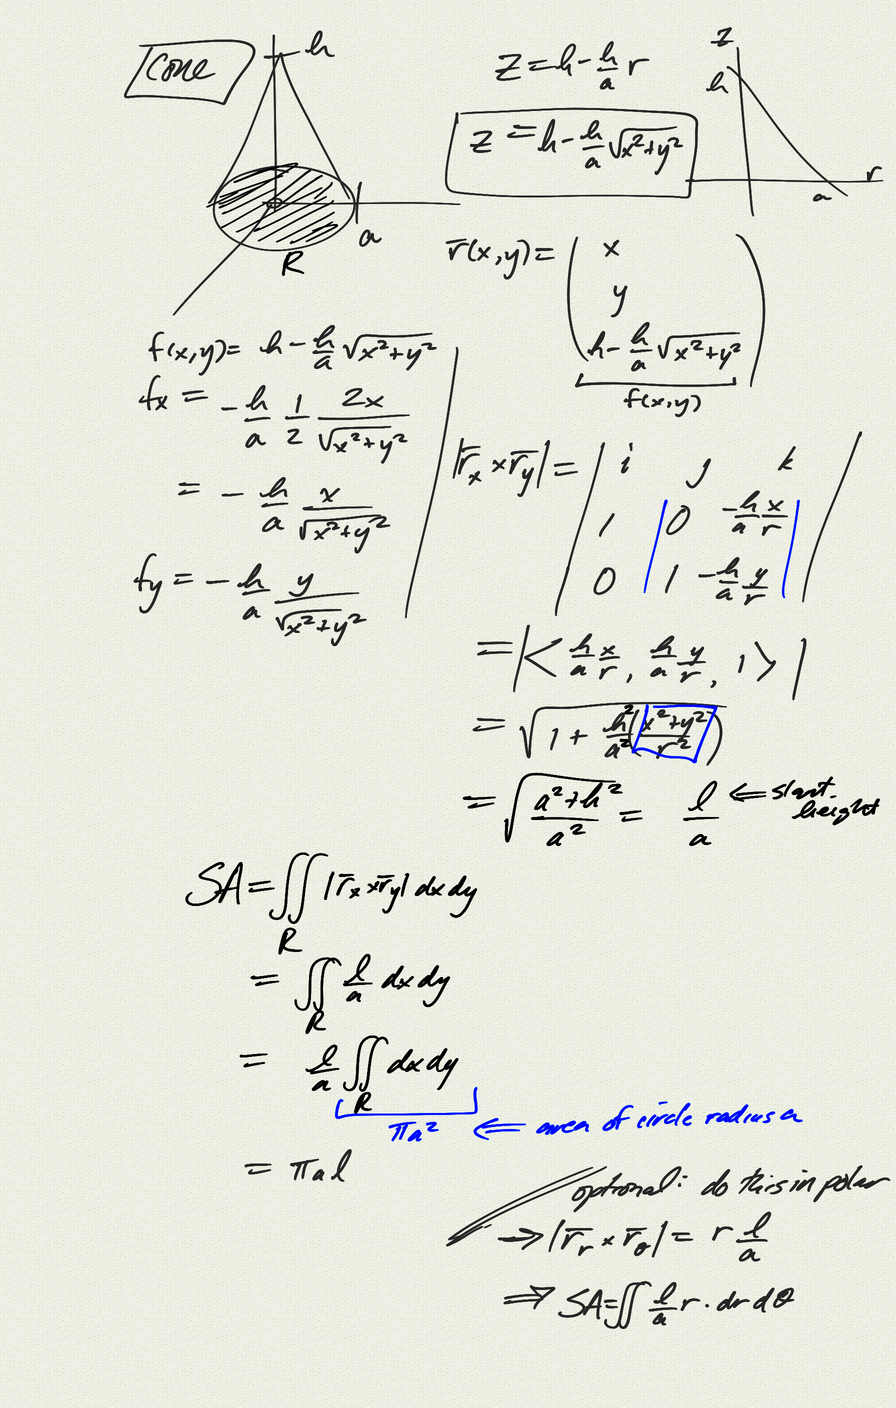 Cone
h
a
R
z = h - h/a r
z = h - h/a √(x²+y²)
z
h
r
a
r̄(x,y) = ( x
y
h - h/a √(x²+y²) )
f(x,y)
f(x,y) = h - h/a √(x²+y²)
fx = - h/a 1/2 2x/√(x²+y²)
= - h/a x/√(x²+y²)
fy = - h/a y/√(x²+y²)
|r̄x × r̄y| = | i j k
1 0 -h/a x/r
0 1 -h/a y/r |
= |< h/a x/r, h/a y/r, 1 >|
= √(1 + h²/a² (x²+y²/r²))
= √(a²+h²/a²) = l/a ⇐ slant height
SA = ∬R |r̄x × r̄y| dx dy
= ∬R l/a dx dy
= l/a ∬R dx dy
πa² ⇐ area of circle radius a
= πal
optional: do this in polar
→ |r̄r × r̄θ| = r l/a
⇒ SA = ∬ l/a r · dr dθ